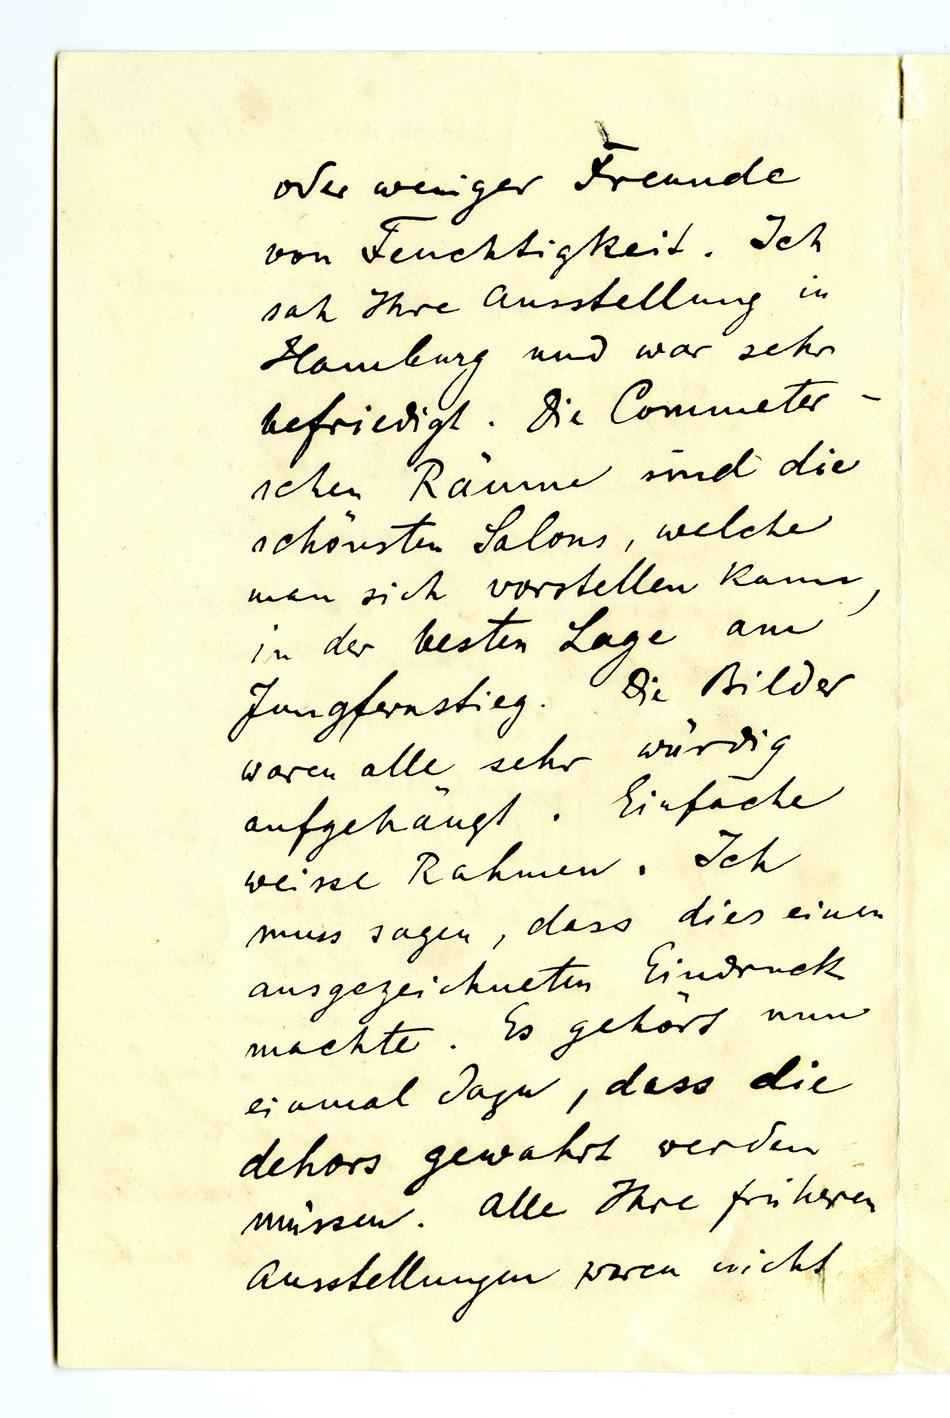 oder weniger Freunde
von Feuchtigkeit. Ich
sah Ihre Ausstellung in
Hamburg und war sehr
befriedigt. Die Commeter-
schen Räume sind die
schönsten Salons, welche
man sich vorstellen kann,
in der besten Lage am
Jungfernstieg. Die Bilder
waren alle sehr würdig
aufgehängt. Einfache
weisse Rahmen. Ich
muss sagen, dass dies einen
ausgezeichneten Eindruck
machte. Es gehört nun
einmal dazu, dass die
dehors gewahrt werden
müssen. Alle Ihre früheren
Ausstellungen waren nicht